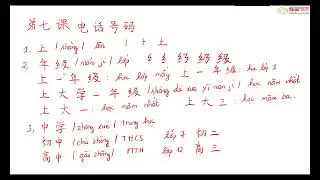 第七课 电话号码
1. 上 | shàng | lên 1 ト 上
2. 年级 | nián jí | lớp 级
上一年级 : học lớp mấy 上一年级 : học lớp 1
上大一 | shàng dà xué yī nián jí | học năm nhất
上大一 : học năm nhất 上大三 : học năm ba
3. 中学 | zhōng xué | trung học
初中 | chū zhōng | THCS lớp 7 初二
高中 | gāo zhōng | PTTH lớp 12 高三